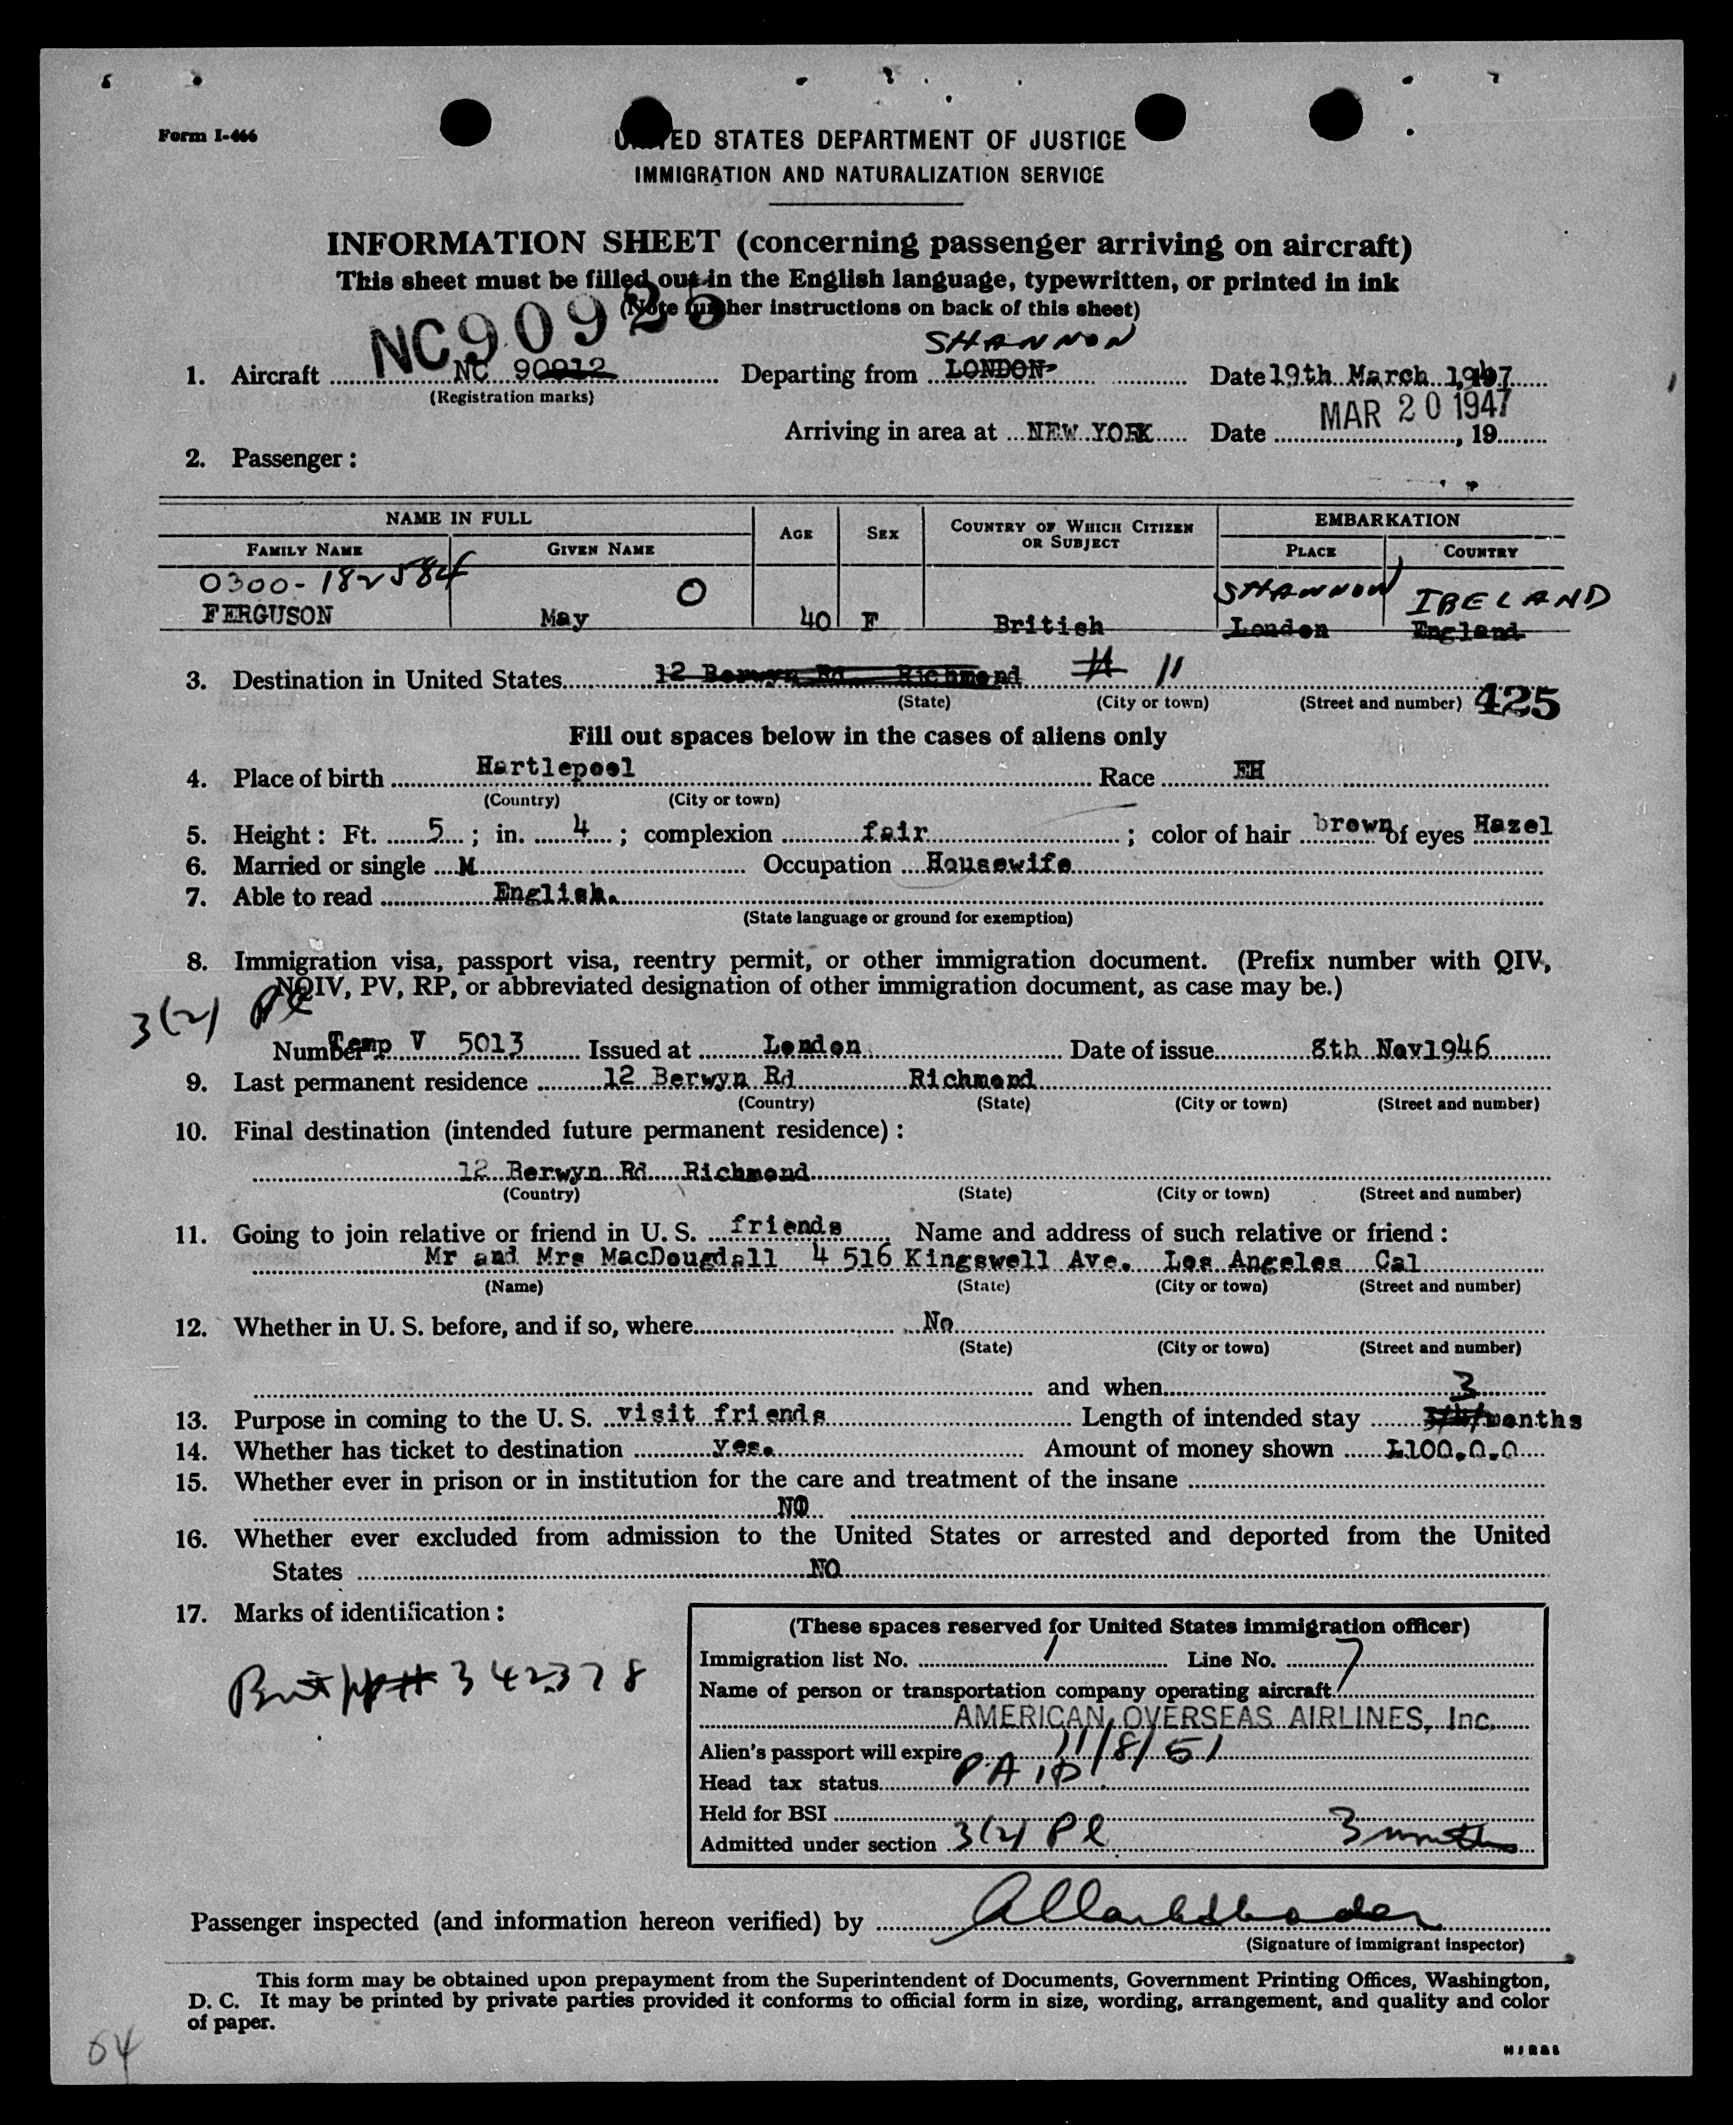 Form I-466
UNITED STATES DEPARTMENT OF JUSTICE
IMMIGRATION AND NATURALIZATION SERVICE
INFORMATION SHEET (concerning passenger arriving on aircraft)
This sheet must be filled out in the English language, typewritten, or printed in ink
(Note further instructions on back of this sheet)
NC90925
SHANNON
1. Aircraft NC 90912 Departing from LONDON Date 19th March 1947
(Registration marks)
MAR 20 1947
Arriving in area at NEW YORK Date , 19
2. Passenger:
NAME IN FULL AGE SEX COUNTRY OF WHICH CITIZEN OR SUBJECT EMBARKATION
FAMILY NAME GIVEN NAME PLACE COUNTRY
0300-182584 O SHANNON, IRELAND
FERGUSON May 40 F British London England
3. Destination in United States 12 Berwyn Rd Richmond # 11
(State) (City or town) (Street and number) 425
Fill out spaces below in the cases of aliens only
4. Place of birth Hartlepool Race EH
(Country) (City or town)
5. Height: Ft. 5; in. 4; complexion fair; color of hair brown of eyes Hazel
6. Married or single M Occupation Housewife
7. Able to read English.
(State language or ground for exemption)
8. Immigration visa, passport visa, reentry permit, or other immigration document. (Prefix number with QIV,
NQIV, PV, RP, or abbreviated designation of other immigration document, as case may be.)
3(2) Pl
Number Temp V 5013 Issued at London Date of issue 8th Nov1946
9. Last permanent residence 12 Berwyn Rd Richmond
(Country) (State) (City or town) (Street and number)
10. Final destination (intended future permanent residence):
12 Berwyn Rd Richmond
(Country) (State) (City or town) (Street and number)
11. Going to join relative or friend in U. S. friends Name and address of such relative or friend:
Mr and Mrs MacDougdall 4 516 Kingswell Ave. Los Angeles Cal
(Name) (State) (City or town) (Street and number)
12. Whether in U. S. before, and if so, where No
(State) (City or town) (Street and number)
and when
3
13. Purpose in coming to the U. S. visit friends Length of intended stay months
14. Whether has ticket to destination yes. Amount of money shown L100.0.0
15. Whether ever in prison or in institution for the care and treatment of the insane
NO
16. Whether ever excluded from admission to the United States or arrested and deported from the United
States NO
17. Marks of identification:
Brit pp# 342378
(These spaces reserved for United States immigration officer)
Immigration list No. 1 Line No. 7
Name of person or transportation company operating aircraft
AMERICAN OVERSEAS AIRLINES, Inc.
Alien's passport will expire 11/8/51
Head tax status PAID
Held for BSI
Admitted under section 3(2) Pl 3 months
Passenger inspected (and information hereon verified) by
(Signature of immigrant inspector)
This form may be obtained upon prepayment from the Superintendent of Documents, Government Printing Offices, Washington,
D. C. It may be printed by private parties provided it conforms to official form in size, wording, arrangement, and quality and color
of paper.
64